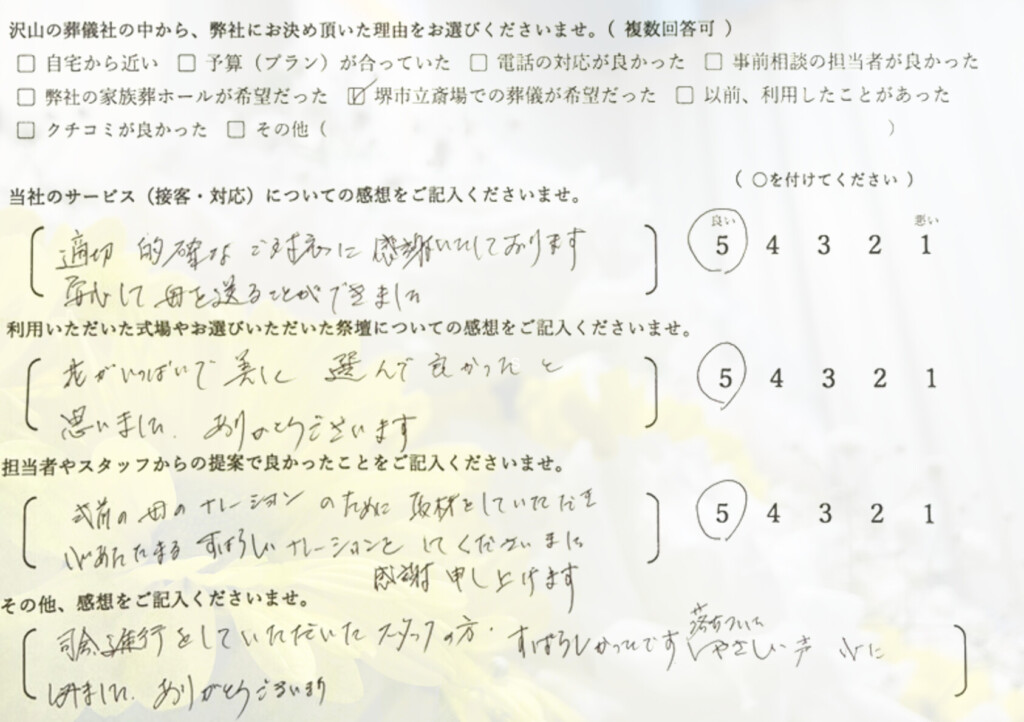 沢山の葬儀社の中から、弊社にお決め頂いた理由をお選びくださいませ。( 複数回答可 )
□ 自宅から近い □ 予算（プラン）が合っていた □ 電話の対応が良かった □ 事前相談の担当者が良かった
□ 弊社の家族葬ホールが希望だった ☑ 堺市立斎場での葬儀が希望だった □ 以前、利用したことがあった
□ クチコミが良かった □ その他（ ）
( ○を付けてください )
当社のサービス（接客・対応）についての感想をご記入くださいませ。
良い 悪い
適切 的確な ご対応に 感謝いたしております
5 4 3 2 1
安心して 母を送ることができました
利用いただいた式場やお選びいただいた祭壇についての感想をご記入くださいませ。
花がいっぱいで 美しく 選んで 良かった と
5 4 3 2 1
思いました。ありがとうございます
担当者やスタッフからの提案で良かったことをご記入くださいませ。
式前の 母の ナレーション のために 取材をしていただき
5 4 3 2 1
心あたたまる すばらしい ナレーションと してくださいました
感謝 申し上げます
その他、感想をご記入くださいませ。
司会進行をしていただいた スタッフの方・すばらしかったです 落ちついた やさしい 声 心に
しみました。ありがとうございます